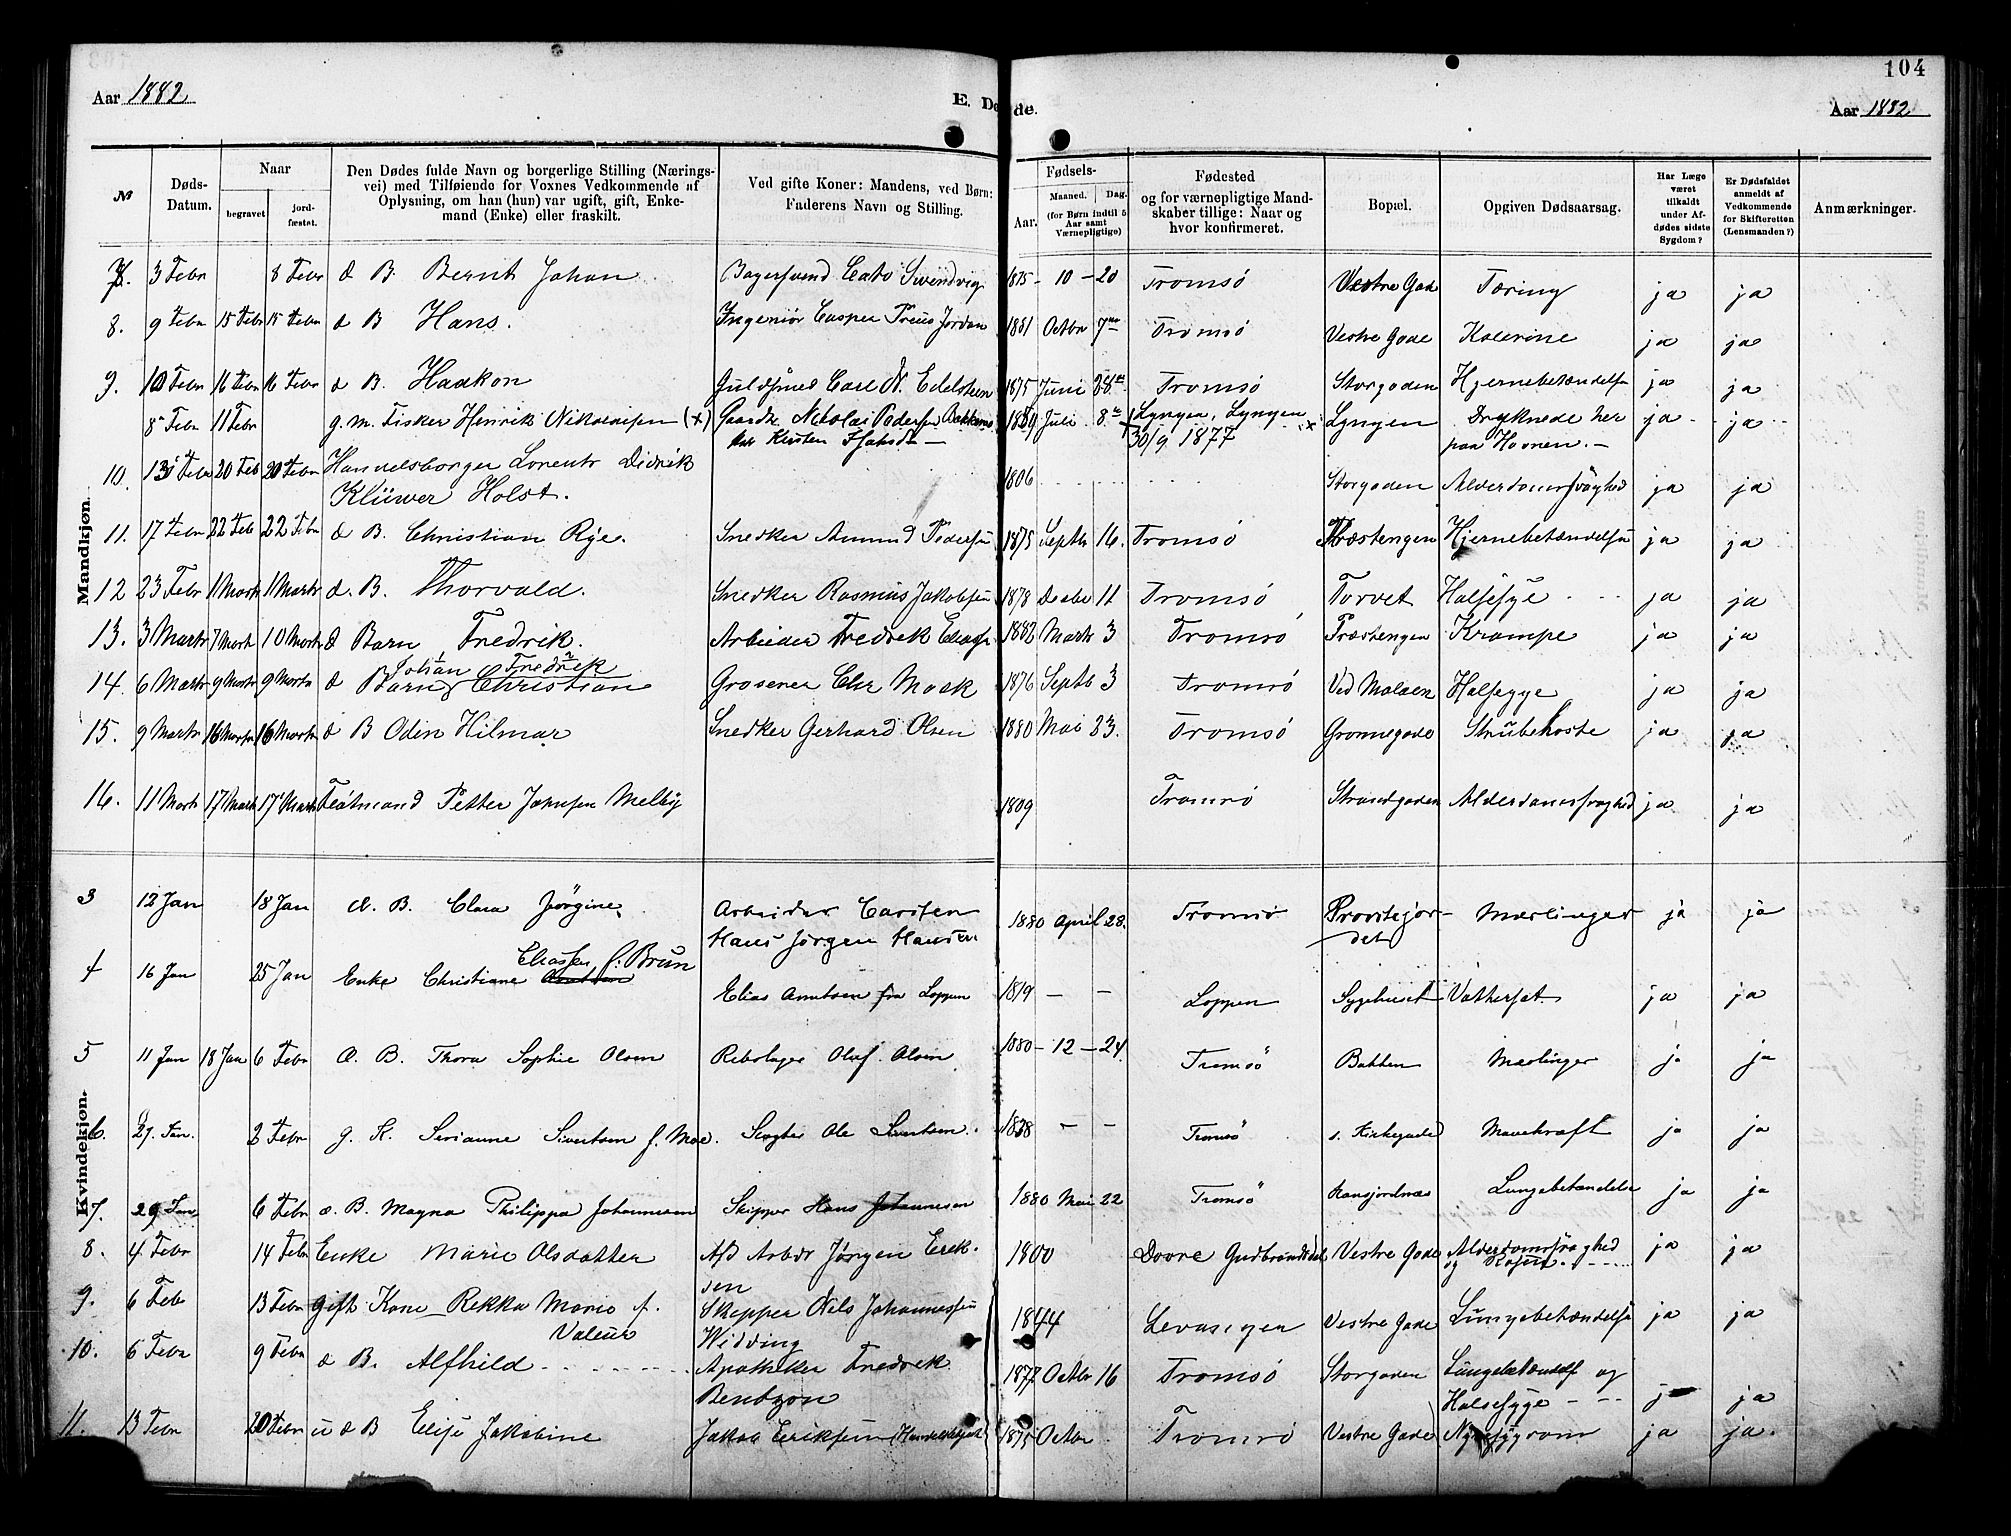 104
Aar 1882
E. Døde.
Aar 1882
№
Døds-Datum.
Naar
begravet
jord-fæstet.
Den Dødes fulde Navn og borgerlige Stilling (Nærings-
vei) med Tilføiende for Voxnes Vedkommende af
Oplysning, om han (hun) var ugift, gift, Enke-
mand (Enke) eller fraskilt.
Ved gifte Koner: Mandens, ved Børn:
Faderens Navn og Stilling.
Fødsels-
Aar.
Maaned.
Dag.
(for Børn indtil 5
Aar samt
Værnepligtige)
Fødested
og for værnepligtige Mand-
skaber tillige: Naar og
hvor konfirmeret.
Bopæl.
Opgiven Dødsaarsag.
Har Læge
været
tilkaldt
under Af-
dødes sidste
Sygdom?
Er Dødsfaldet
anmeldt af
Vedkommende
for Skifteretten
(Lensmanden?)
Anmærkninger.
Mandkjøn.
7. 3 Febr 8 Febr d B. Bernt Johan Bagersvend Cato Svendvig 1875 - 10 - 20 Tromsö Vestre Gade Tæring ja ja
8. 9 Febr 15 Febr 15 Febr d B Hans. Ingeniör Casper Preus Jordan 1881 Octbr 7de Tromsö Vestre Gade Kolerine ja ja
9. 10 Febr 16 Febr 16 Febr d B. Haakon Guldsmed Carl W. Edelsteen 1875 Juni 28de Tromsö Storgaden Hjernebetændelse ja ja
8 Febr 11 Febr g. M. Fisker Henrik Nikolaisen (x) Gaardbr Nikolai Pedersen 1859 Juli 8de Lyngen, Lyngen x Lyngen Druknede her ja ja
Kirsten 30/9 1877 paa Havnen. -
10. 13 Febr 20 Febr 20 Febr Handelsborger Lorents Didrik
Klüwer Holst. 1806 Storgaden Alderdomssvaghed ja ja
11. 17 Febr 22 Febr 22 Febr d B. Christian Rye. Snedker Amund Pedersen 1875 Septbr 16. Tromsö Præstengen Hjernebetændelse ja ja
12 23 Febr 1 Marts 1 Marts d. B. Thorvald. Snedker Rasmus Jakobsen 1878 Decbr 11 Tromsö Torvet Halsesyge ja ja
13. 3 Marts 7 Marts 10 Marts d Barn Fredrik. Arbeider Fredrik Eliass 1882 Marts 3 Tromsö Præstengen Krampe ja ja
Johan Fredrik
14. 6 Marts 9 Marts 9 Marts d Barn Christian Grosserer Chr Mack 1876 Septb 3 Tromsö Ved Moloen Halsesyge ja ja
15. 9 Marts 16 Marts 16 Marts d B Odin Hilmar Snedker Gerhard Olsen 1880 Mai 23. Tromsö Grønnegade Strubehoste ja ja
16. 11 Marts 17 Marts 17 Marts Petter Jakobsen Melby 1809 Tromsö Strandgaden Alderdomssvaghed ja ja
Kvindekjøn.
3 12 Jan 18 Jan d. B. Clara Jörgine. Arbeider Carsten 1880 April 28. Tromsö Provstejor- Mæslinger ja ja
Hans Jørgen Hansen det
Eliassen f. Brun
4 16 Jan 25 Jan Enke Christiane Arntsen Elias Arntsen fra Loppen 1819 - - Loppen Sygehuset Vattersot. ja ja
5 11 Jan 18 Jan 6 Febr d. B. Thora Sophie Olsen Rebslager Olaf Olsen 1880 - 12 - 24. Tromsö Bakken Mæslinger ja ja
6. 27. Jan. 2 Febr g. K. Serianne Sivertsen f. Moe. Ole Sivertsen. 1838 - - Tromsö s. Kirkegade Mavekræft ja ja
7. 29 Jan 6 Febr d. B. Magna Philippa Johannesen Skipper Hans Johannesen 1880 Mai 22 Tromsö Hansjordnæs Lungebetændelse ja ja
8. 4. Febr 14 Febr Enke Marie Olsdatter Afd Arbdr Jørgen Erik- 1800 Dovre Gudbrandsdal Vestre Gade Alderdomssvaghed ja ja
sen og
9. 6 Febr 13 Febr Gift Kone Rekka Marie f. Skipper Nils Johannessen 1844 Levanger Vestre Gade Lungebetændelse ja ja
Valeur Widding
10. 6 Febr 9 Febr d B. Alfhild Apotheker Fredrik 1877 Octbr 16 Tromsö Storgaden Lungebetændelse og
Bentzon Halsesyge ja ja
11. 13 Febr 20 Febr u d B Elise Jakobine Jakob Eriksen 1875 Octbr Tromsö Vestre Gade Nyresygdom ja ja.